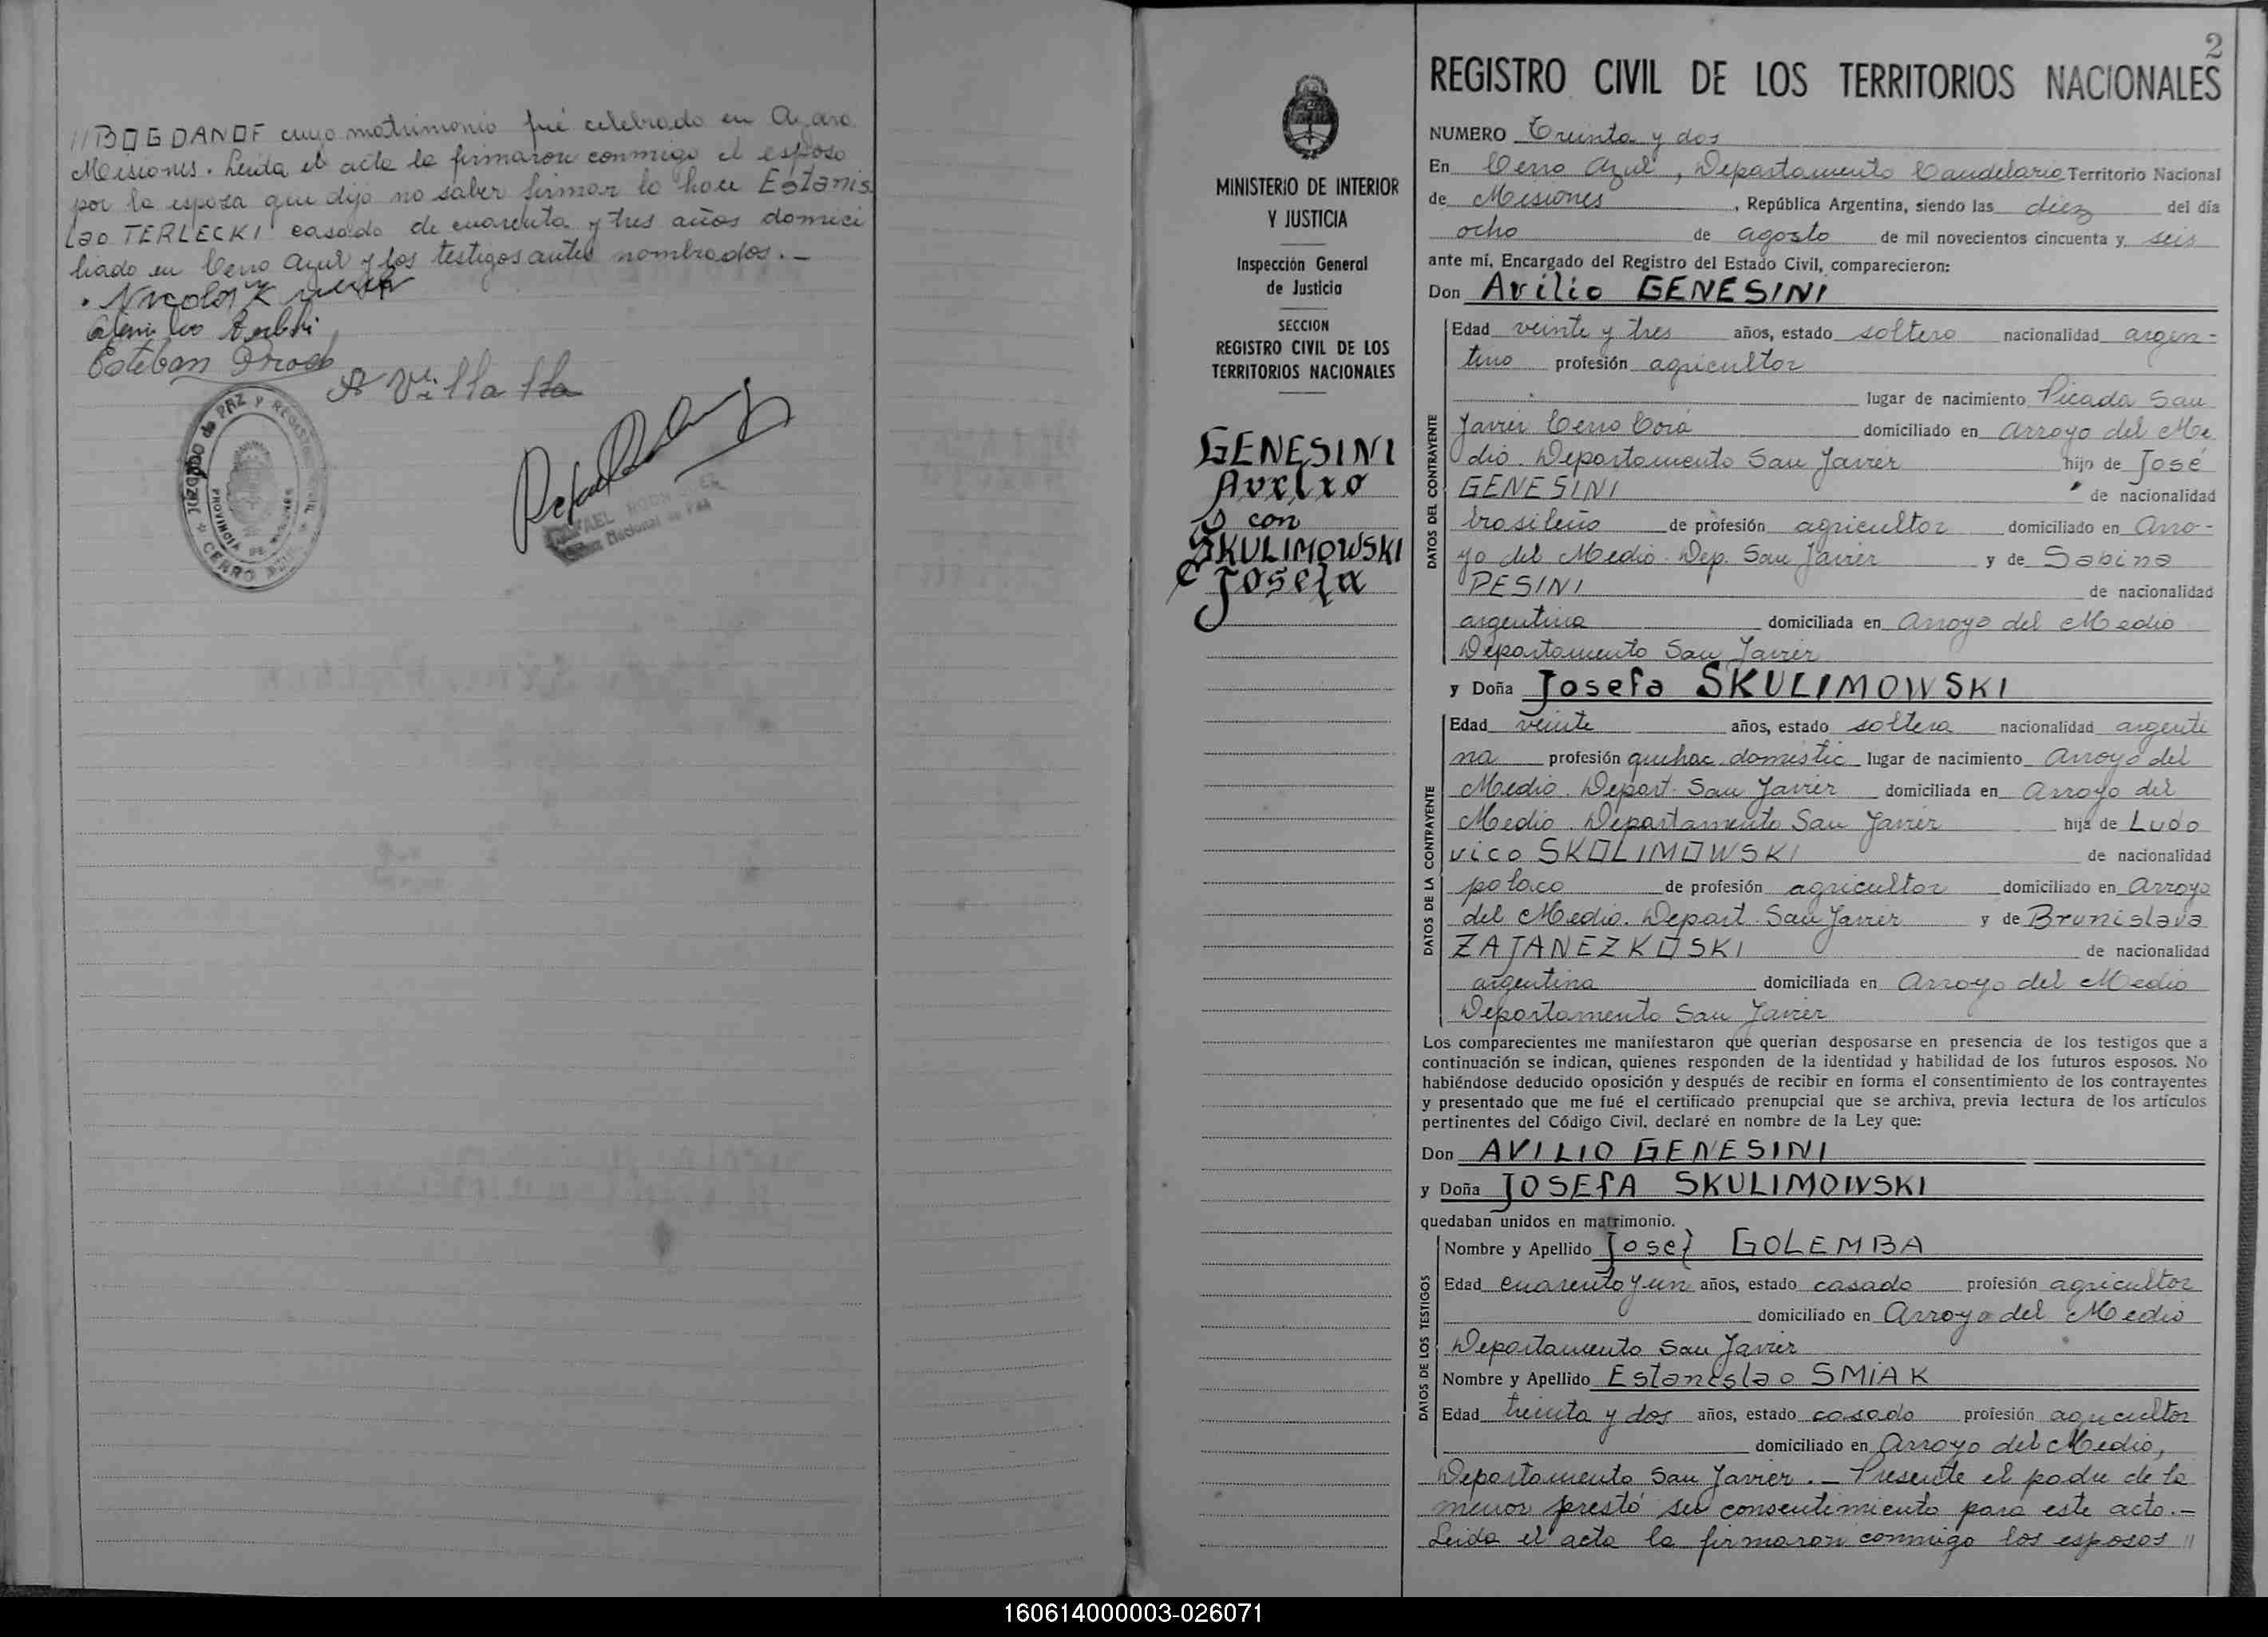 //BOGDANOF cuyo matrimonio fué celebrado en
Misiones. Leida el acta la firmaron conmigo el esposo
por la esposa que dijo no saber firmar lo hace Estanis
lao TERLECKI casado de cuarenta y tres años domici
liado en Cerro Azul y los testigos antes nombrados.—
Nicolas
Esteban
A Villalla
JUZGADO de PAZ y REGISTRO CIVIL
PROVINCIA DE MISIONES
CERRO AZUL
RAFAEL
Nacional de Paz
2
REGISTRO CIVIL DE LOS TERRITORIOS NACIONALES
MINISTERIO DE INTERIOR
Y JUSTICIA
Inspección General
de Justicia
SECCION
REGISTRO CIVIL DE LOS
TERRITORIOS NACIONALES
GENESINI
Avelio
con
SKULIMOWSKI
Josefa
NUMERO Treinta y dos
En Cerro Azul, Departamento Candelaria Territorio Nacional
de Misiones, República Argentina, siendo las diez del día
ocho de agosto de mil novecientos cincuenta y seis
ante mí, Encargado del Registro del Estado Civil, comparecieron:
Don Avilio GENESINI
DATOS DEL CONTRAYENTE
Edad veinte y tres años, estado soltero nacionalidad argen-
tino profesión agricultor
lugar de nacimiento Picada San
Javier Cerro Corá domiciliado en Arroyo del Me
dio. Departamento San Javier hijo de José
GENESINI de nacionalidad
brasileño de profesión agricultor domiciliado en Arro-
yo del Medio. Dep. San Javier y de Sabina
PESINI de nacionalidad
argentina domiciliada en Arroyo del Medio
Departamento San Javier
y Doña Josefa SKULIMOWSKI
DATOS DE LA CONTRAYENTE
Edad veinte años, estado soltera nacionalidad argenti
na profesión quehac. domestic lugar de nacimiento Arroyo del
Medio. Depart. San Javier domiciliada en Arroyo del
Medio. Departamento San Javier hija de Ludo
vico SKOLIMOWSKI de nacionalidad
polaco de profesión agricultor domiciliado en Arroyo
del Medio. Depart. San Javier y de Brunislava
ZAJANEZKOSKI de nacionalidad
argentina domiciliada en Arroyo del Medio
Departamento San Javier
Los comparecientes me manifestaron que querían desposarse en presencia de los testigos que a
continuación se indican, quienes responden de la identidad y habilidad de los futuros esposos. No
habiéndose deducido oposición y después de recibir en forma el consentimiento de los contrayentes
y presentado que me fué el certificado prenupcial que se archiva, previa lectura de los artículos
pertinentes del Código Civil, declaré en nombre de la Ley que:
Don AVILIO GENESINI
y Doña JOSEFA SKULIMOWSKI
quedaban unidos en matrimonio.
DATOS DE LOS TESTIGOS
Nombre y Apellido Josef GOLEMBA
Edad cuarenta y un años, estado casado profesión agricultor
domiciliado en Arroyo del Medio
Departamento San Javier
Nombre y Apellido Estanislao SMIAK
Edad treinta y dos años, estado casado profesión agricultor
domiciliado en Arroyo del Medio,
Departamento San Javier.— Presente el padre de la
menor prestó su consentimiento para este acto.—
Leida el acta la firmaron conmigo los esposos //
160614000003-026071